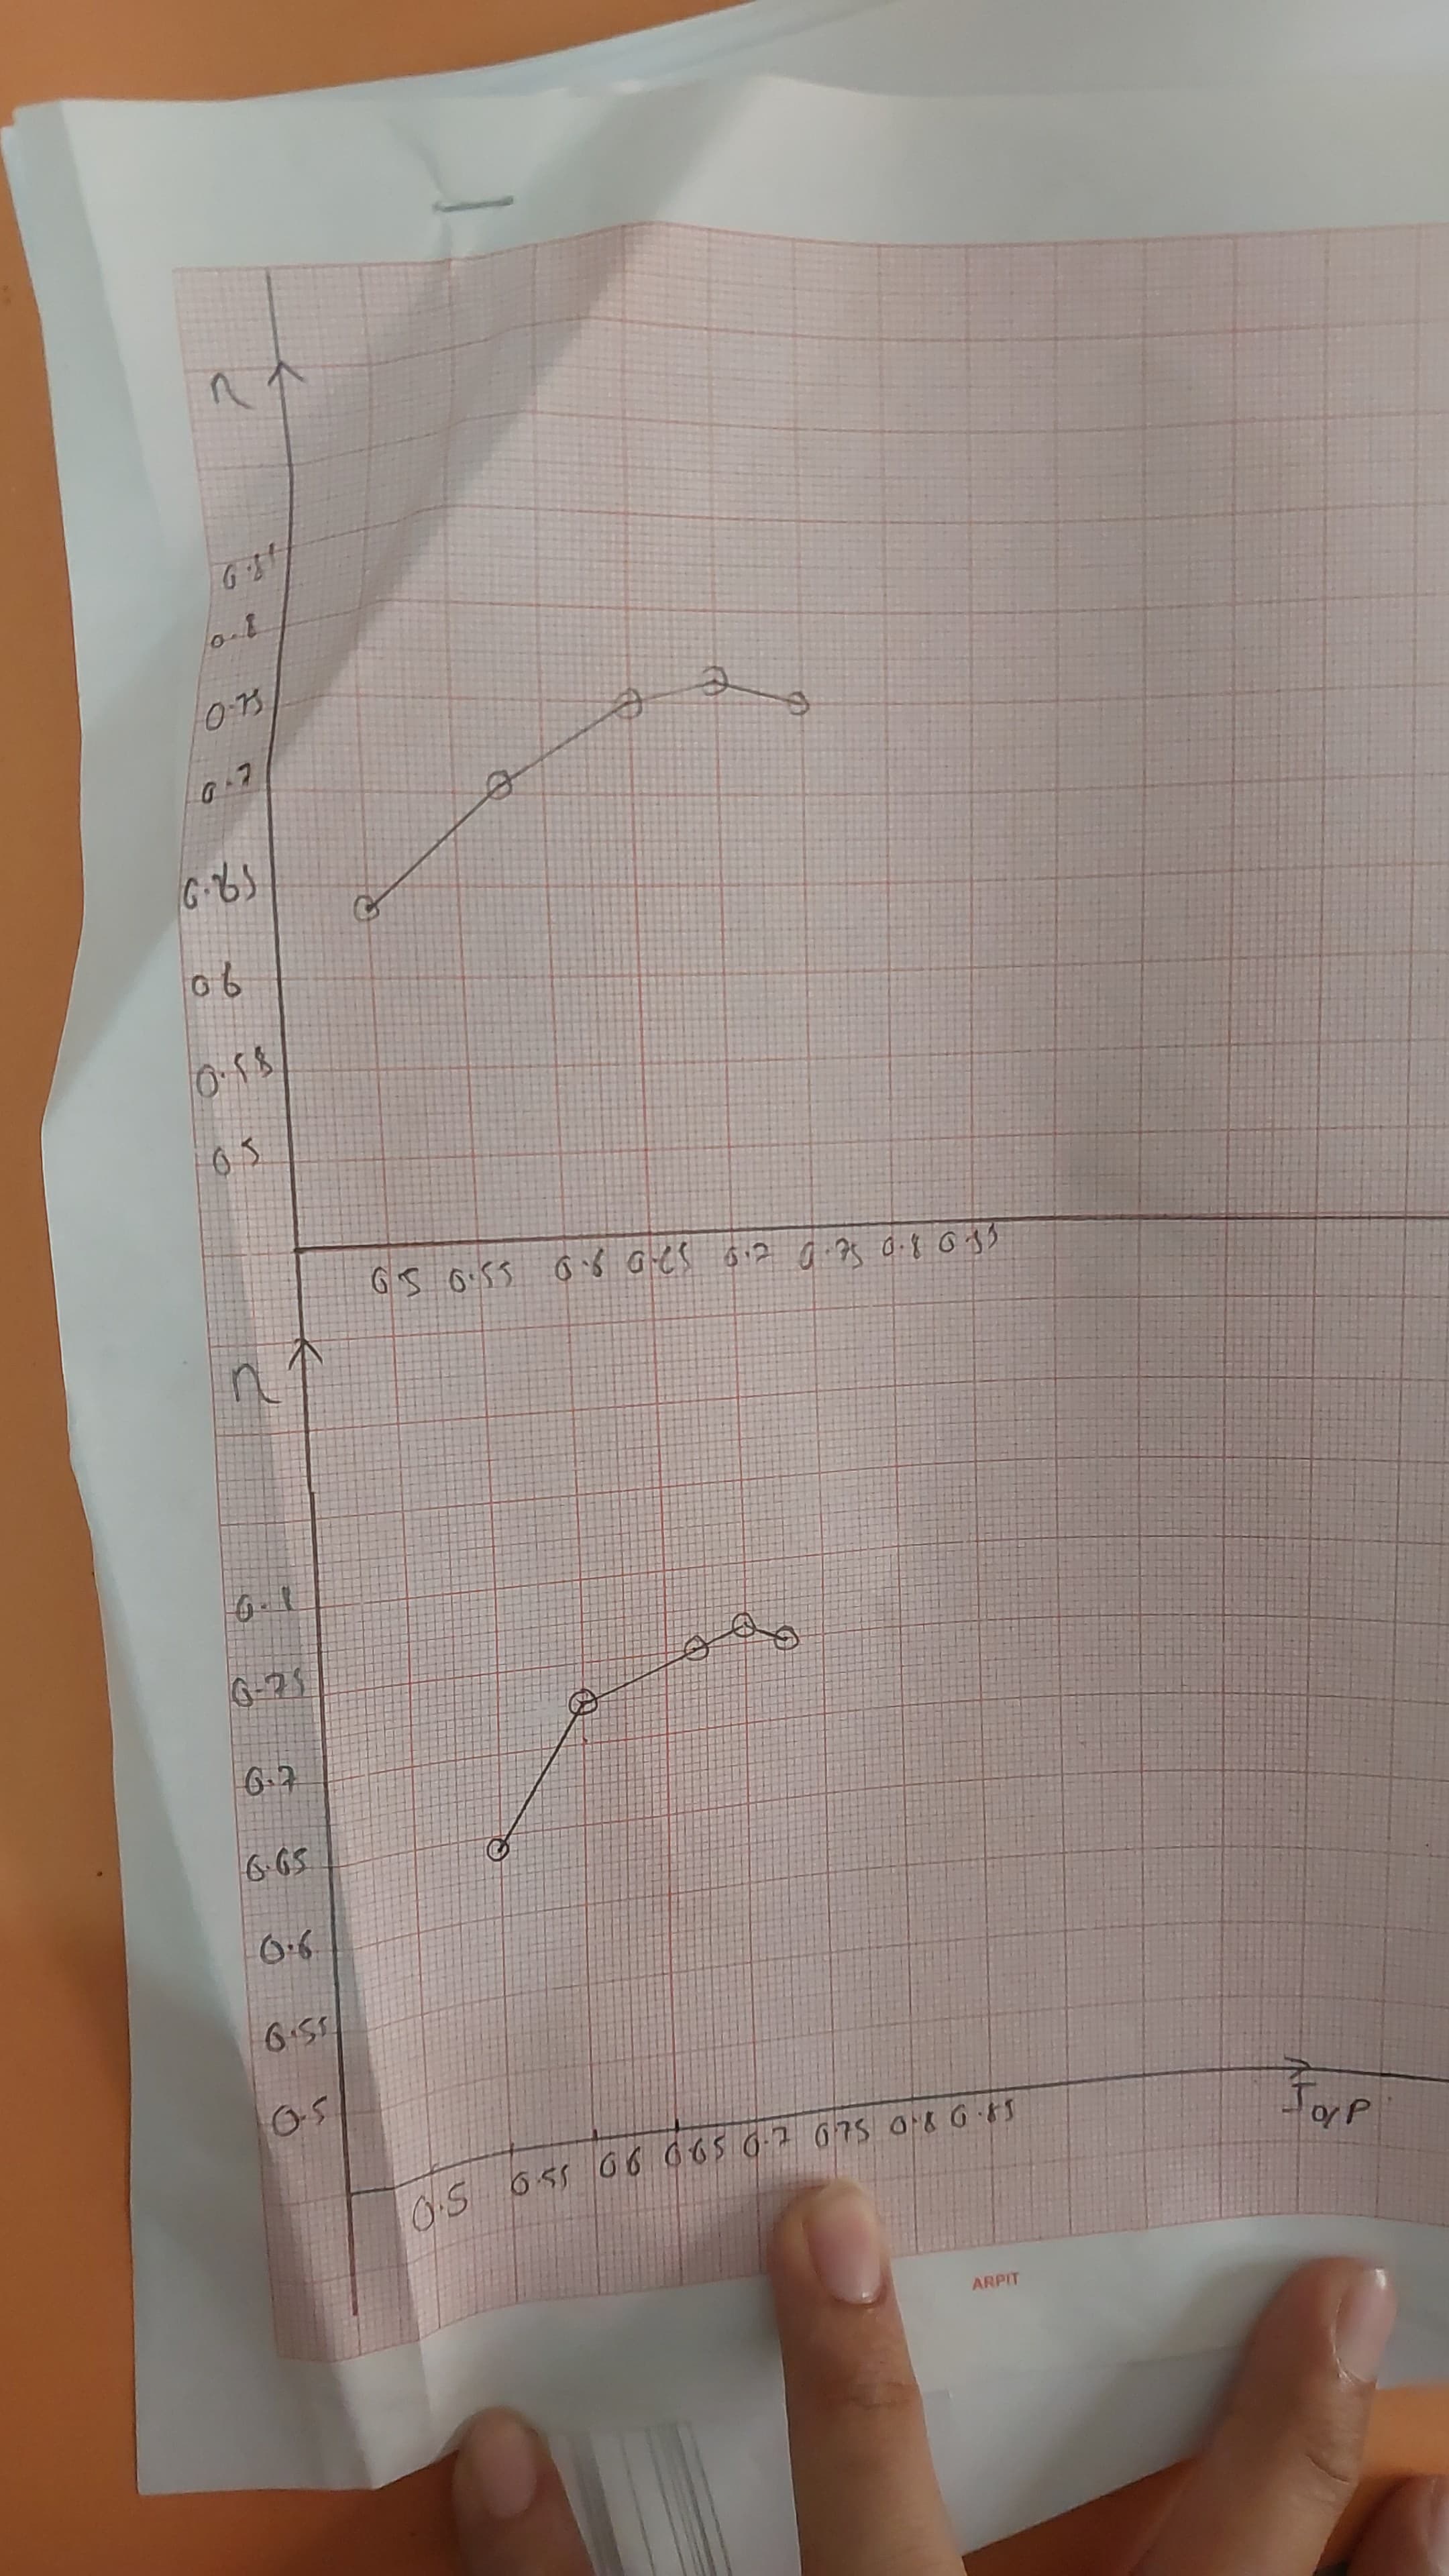 η
0.8
0.75
0.7
0.65
0.6
0.5
0.5 0.55 0.6 0.65 0.7 0.75 0.8 0.85
η
0.8
0.75
0.7
0.65
0.6
0.55
0.5
0.5 0.55 0.6 0.65 0.7 0.75 0.8 0.85
I o/p
ARPIT